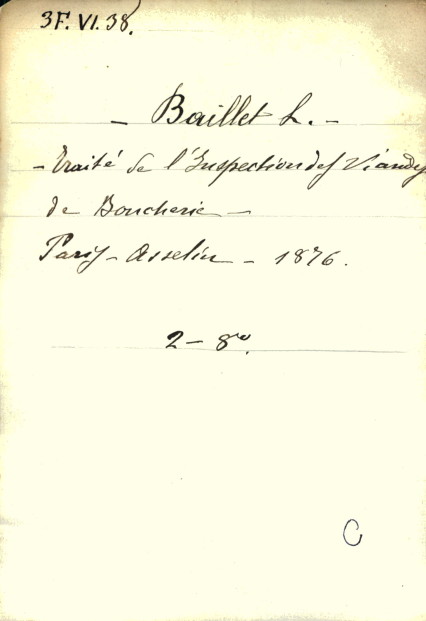 3F. VI. 38.
- Baillet L. -
- Traité de l'Inspection des Viandes
de Boucherie -
Paris - Asselin - 1876.
2 - 8vo.
C